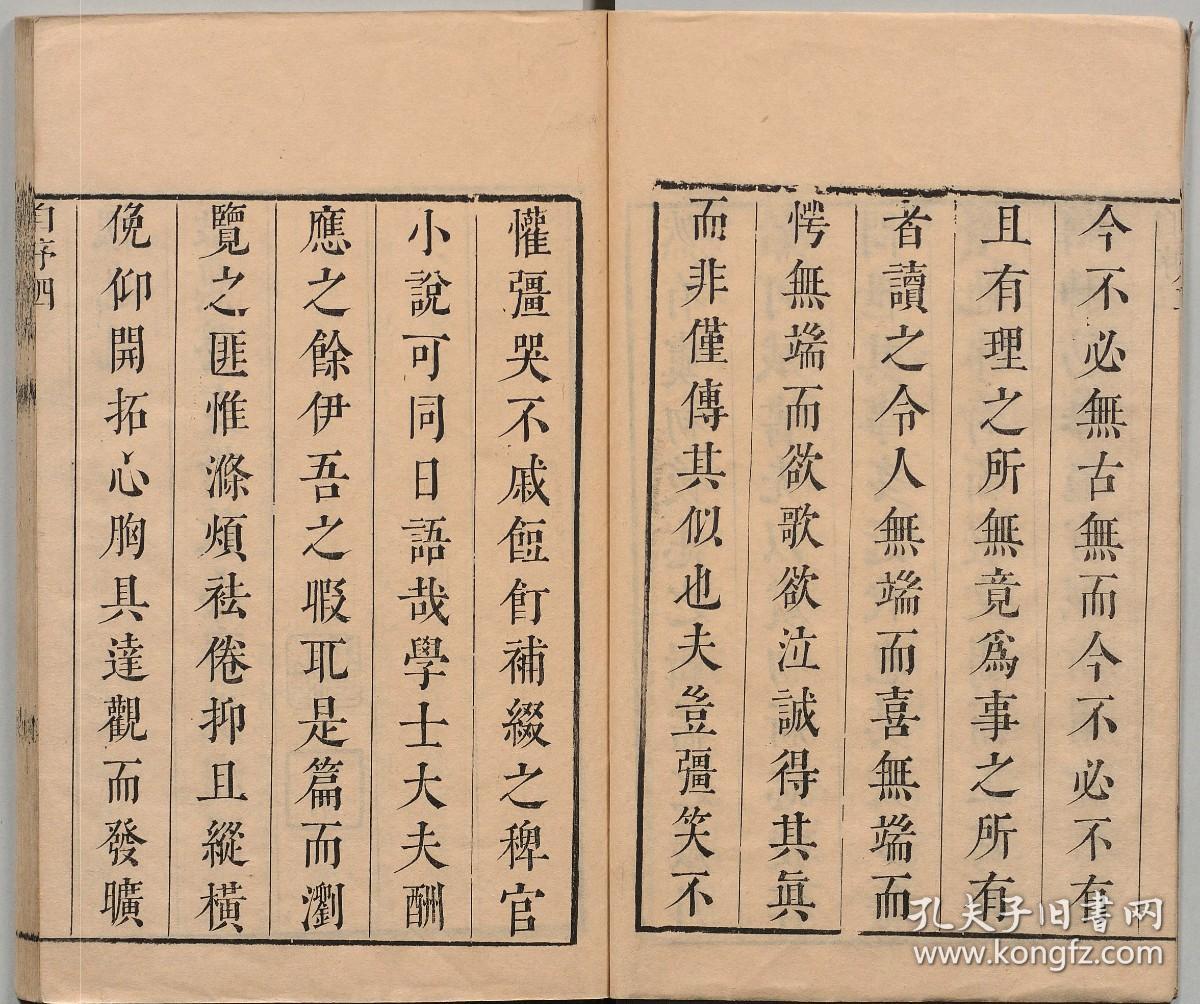 今不必無古無而今不必不有
且有理之所無竟爲事之所有
者讀之令人無端而喜無端而
愕無端而欲歌欲泣誠得其眞
而非僅傳其似也夫豈彊笑不
懽彊哭不戚飣飣補綴之稗官
小說可同日語哉學士大夫酬
應之餘伊吾之暇耴是篇而瀏
覽之匪惟滌煩祛倦抑且縱橫
俛仰開拓心胸具達觀而發曠
自序四
孔夫子旧书网
www.kongfz.com